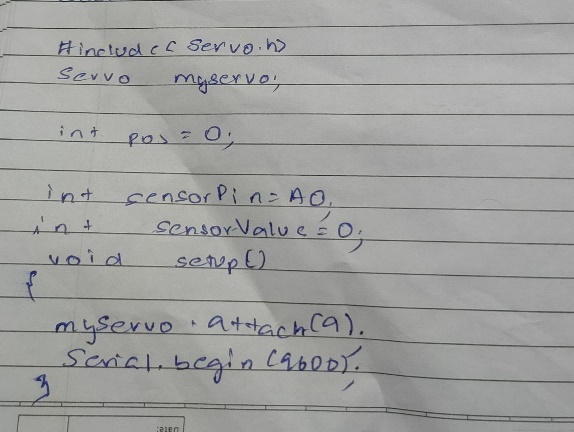 #include < Servo.h>
Servo myservo;
int pos = 0;
int sensorPin = A0;
int sensorValue = 0;
void setup()
{
myservo.attach(9).
Serial.begin(9600);
}